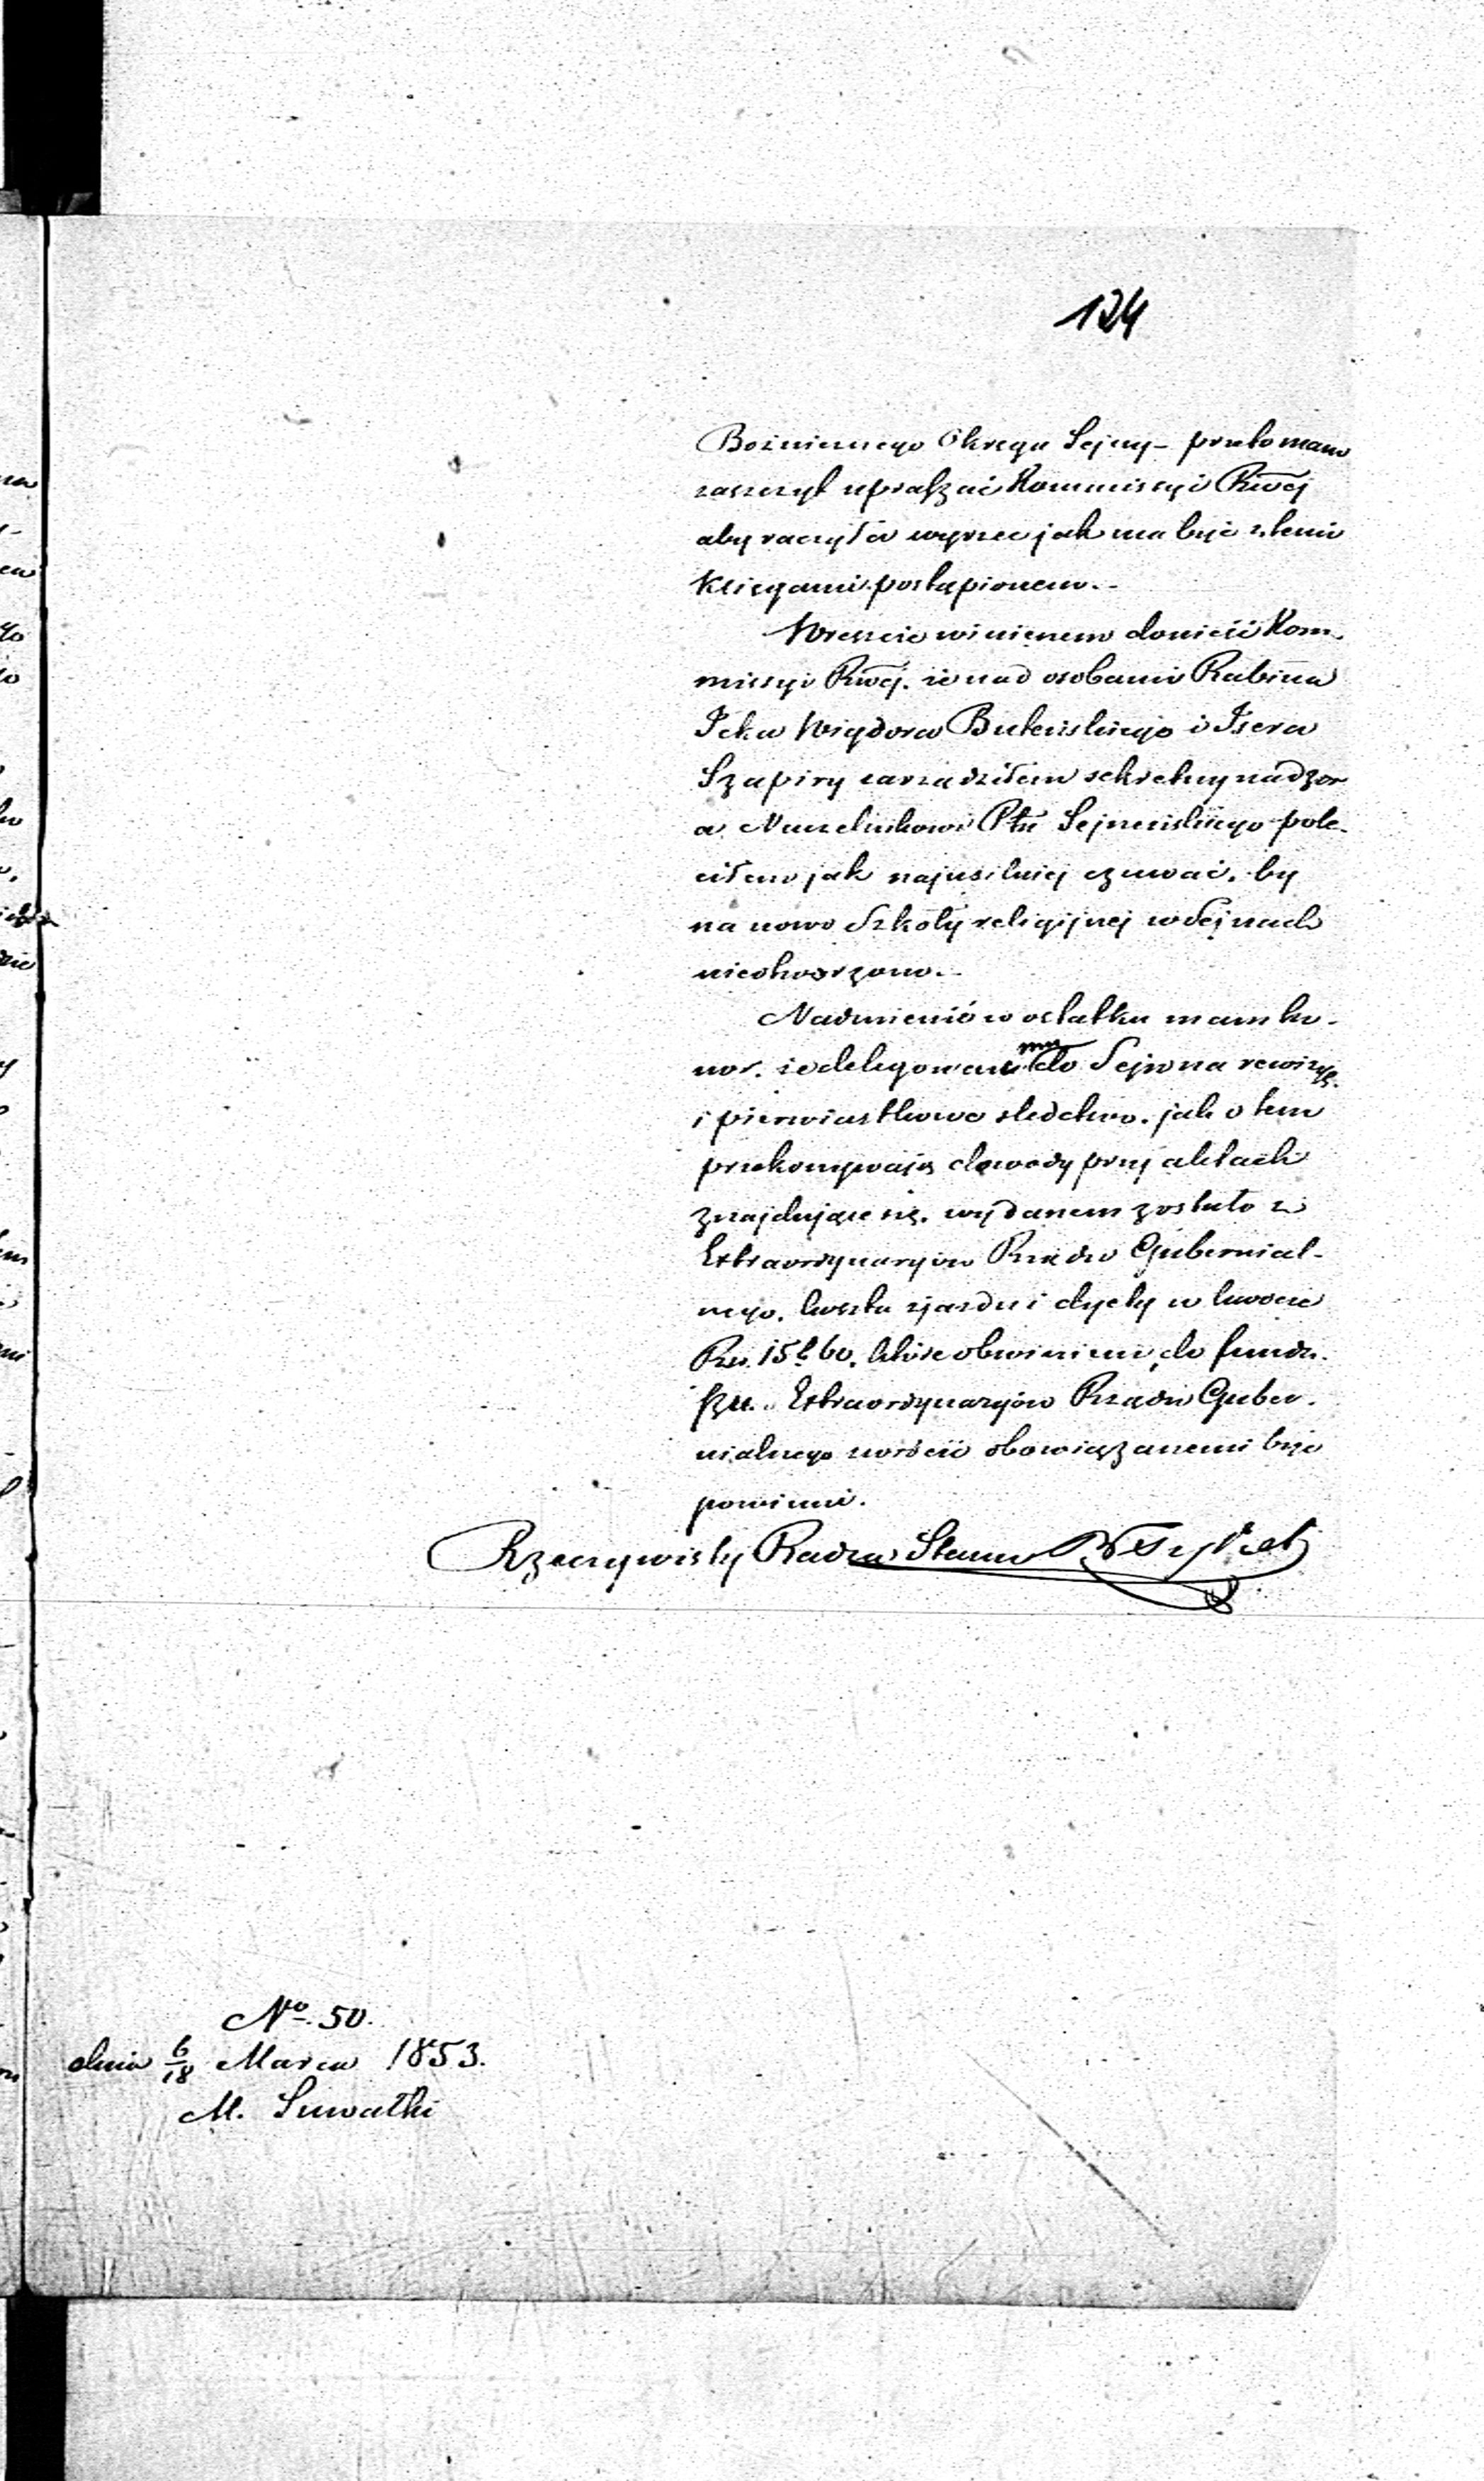 124
Bożnicznego Okręgu Sejny – przeto mam
zaszczyt upraszać Kommissyi Rwej
aby raczyła wyrzec jak ma być z temi
Księgami postąpionem.
Wreszcie winienem donieść Kom-
missyi Rwej. iż nad osobami Rabina
Icka Wigdora Buteńskiego i Isera
Szapiry zarządziłem sekretny nadzor
a Naczelnikowi Ptu Sejneńskiego pole-
ciłem jak najusilniej czuwać, by
na nowo Szkoły religijnej w Sejnach
nieotworzono.
Nadmienić w ostatku mam ho-
nor, że delegowanemu do Sejn na rewizyę
i pierwiastkowe śledztwo, jak o tem
przekonywają dowody przy aktach
znajdujące się, wydanem zostało z
Extraordynaryów Rządu Gubernial-
nego, koszta zjazdu i dyety w kwocie
Rsr. 15 k 60, które obwinieni do fundu-
szu Extraordynaryów Rządu Guber-
nialnego zwrócić obowiązanemi być
powinni.
Rzeczywisty Radca Stanu
No. 50.
dnia 6/18 Marca 1853.
M. Suwałki